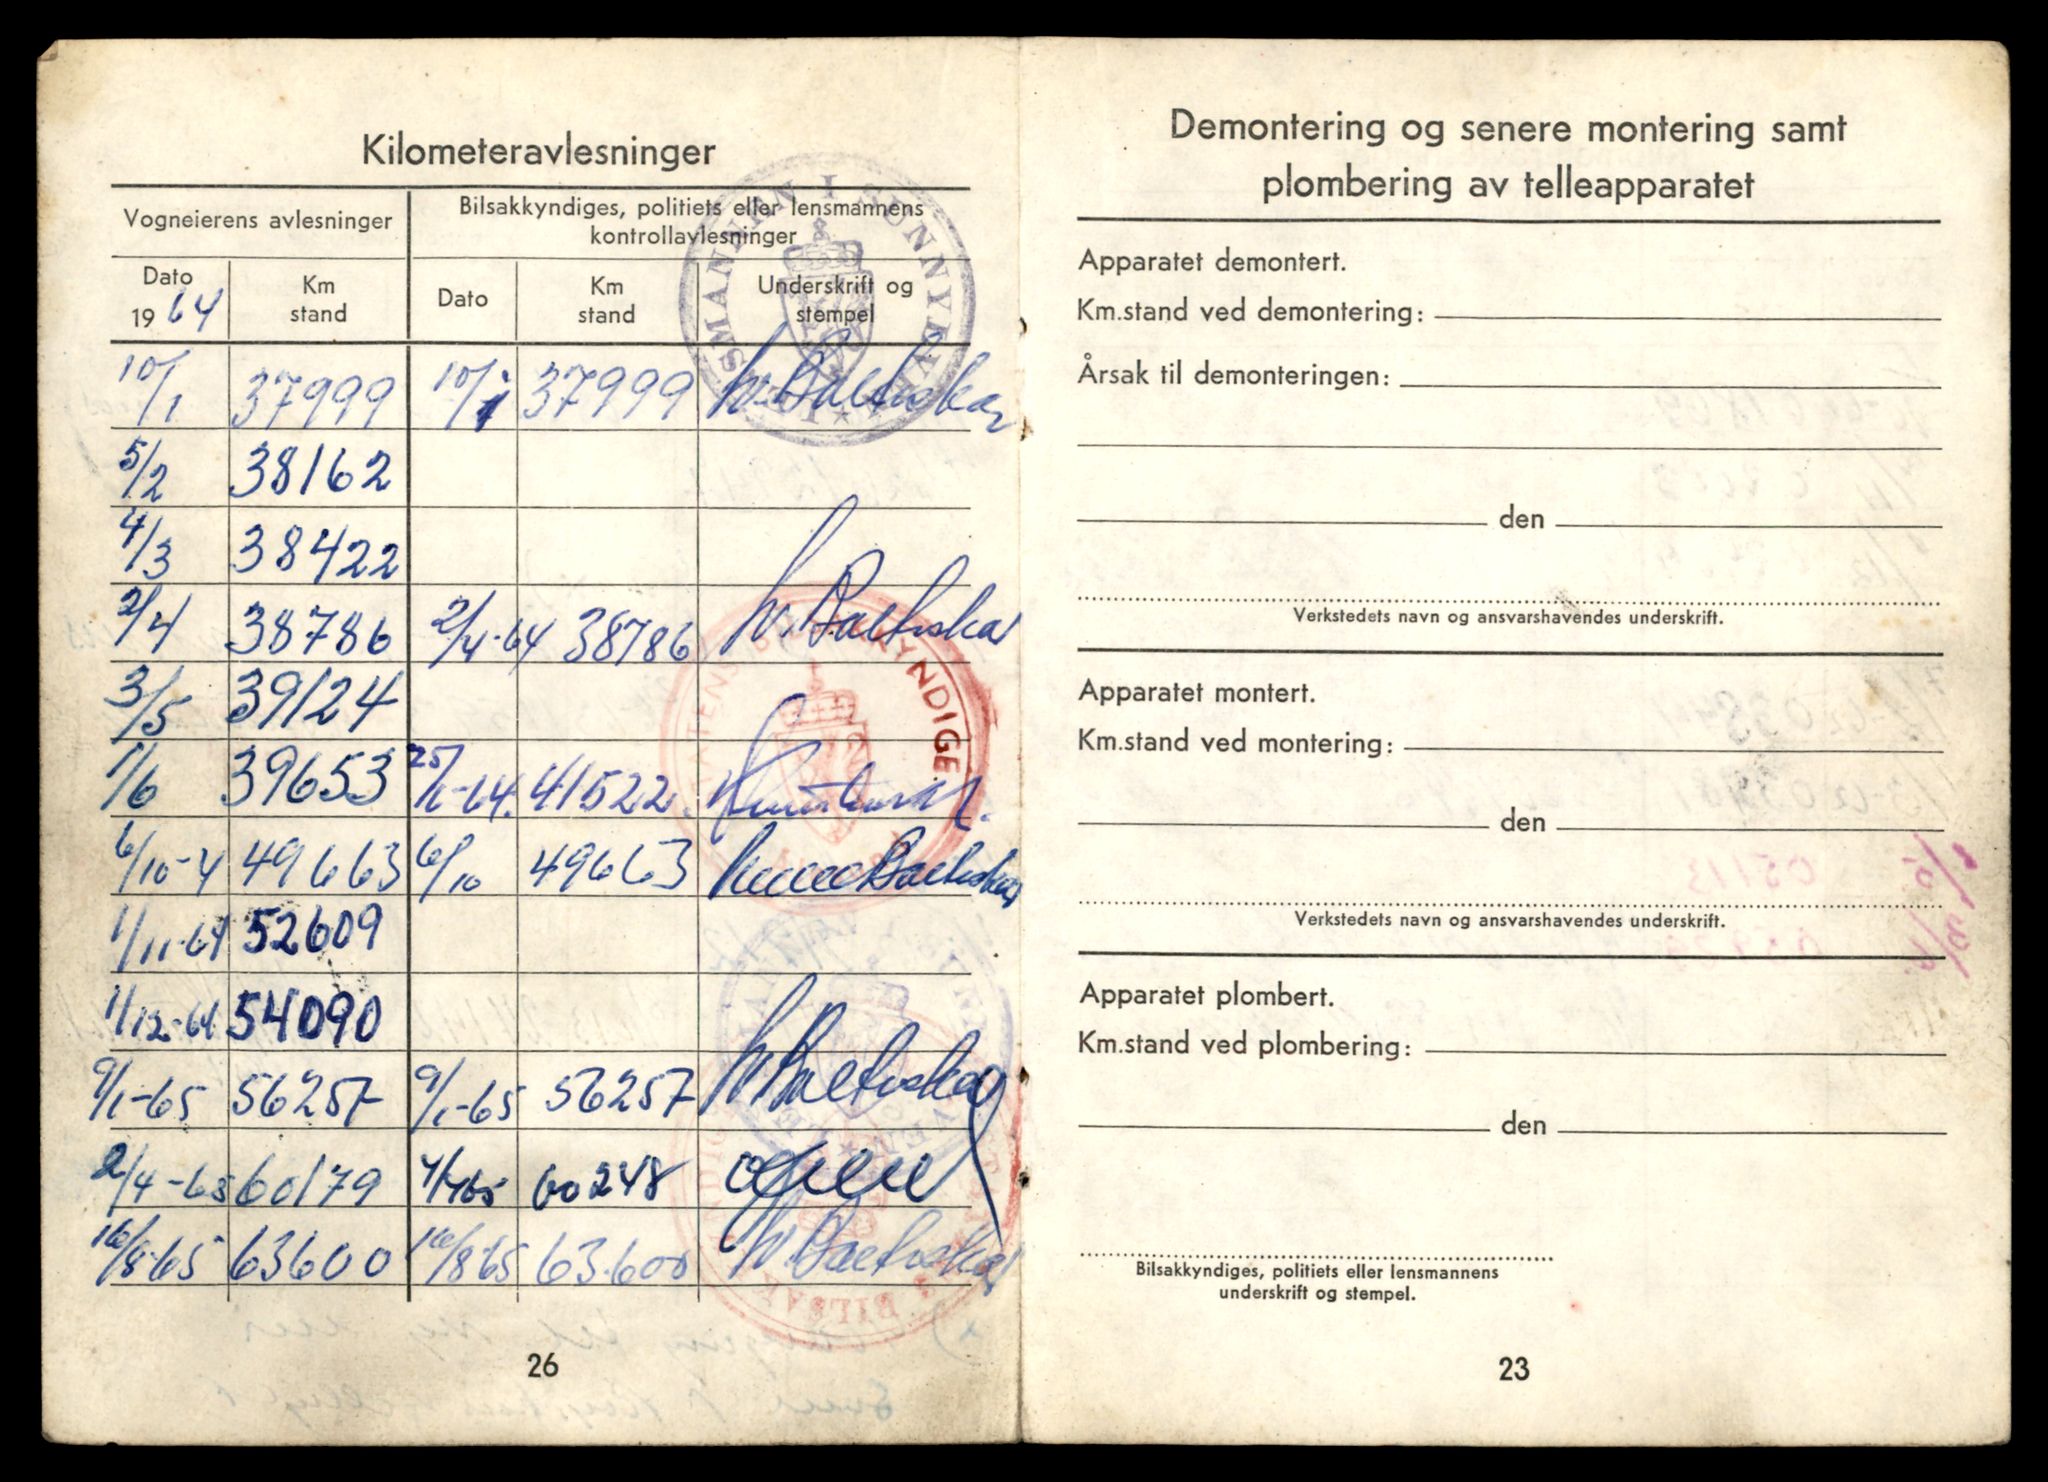 Kilometeravlesninger
Vogneierens avlesninger
Bilsakkyndiges, politiets eller lensmannens
kontrollavlesninger
Dato
1964
Km
stand
Dato
Km
stand
Underskrift og
stempel
SMANNEN I SUNNYLVEN
10/1 37999 10/1 37999
5/2 38162
4/3 38422
2/4 38786 2/4-64 38786
3/5 39124
1/6 39653 25/ -64. 41522.
6/10-4 49663 6/10 49663
1/11-64 52609
1/12-64 54090
9/1-65 56257 9/1-65 56257
2/4-65 60179 7/4 65 60248
16/8-65 63600 16/8-65 63.600
STATENS BILSAKKYNDIGE
26
Demontering og senere montering samt
plombering av telleapparatet
Apparatet demontert.
Km.stand ved demontering:
Årsak til demonteringen:
den
Verkstedets navn og ansvarshavendes underskrift.
Apparatet montert.
Km.stand ved montering:
den
Verkstedets navn og ansvarshavendes underskrift.
Apparatet plombert.
Km.stand ved plombering:
den
Bilsakkyndiges, politiets eller lensmannens
underskrift og stempel.
23